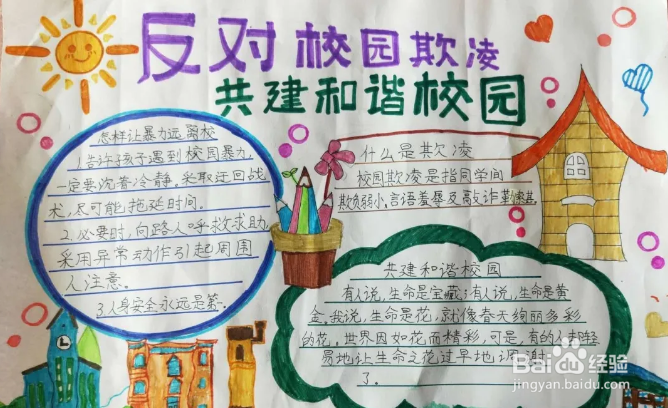 反对校园欺凌
共建和谐校园
怎样让暴力远离校
1.告许孩子遇到校园暴力,
一定要沈着冷静。采取迂回战
术,尽可能拖延时间。
2.必要时,向路人呼救求助,
采用异常动作引起周围
人注意。
3.人身安全永远是第一.
什么是欺凌
校园欺凌是指同学间
欺负弱小,言语羞辱及敲诈
共建和谐校园
有人说,生命是宝藏;有人说,生命是黄
金。我说,生命是花,就像春天绚丽多彩
的花,世界因如花而精彩,可是,有的人却轻
易地让生命之花过早地凋谢
了.
Baidu经验
jingyan.baidu.com